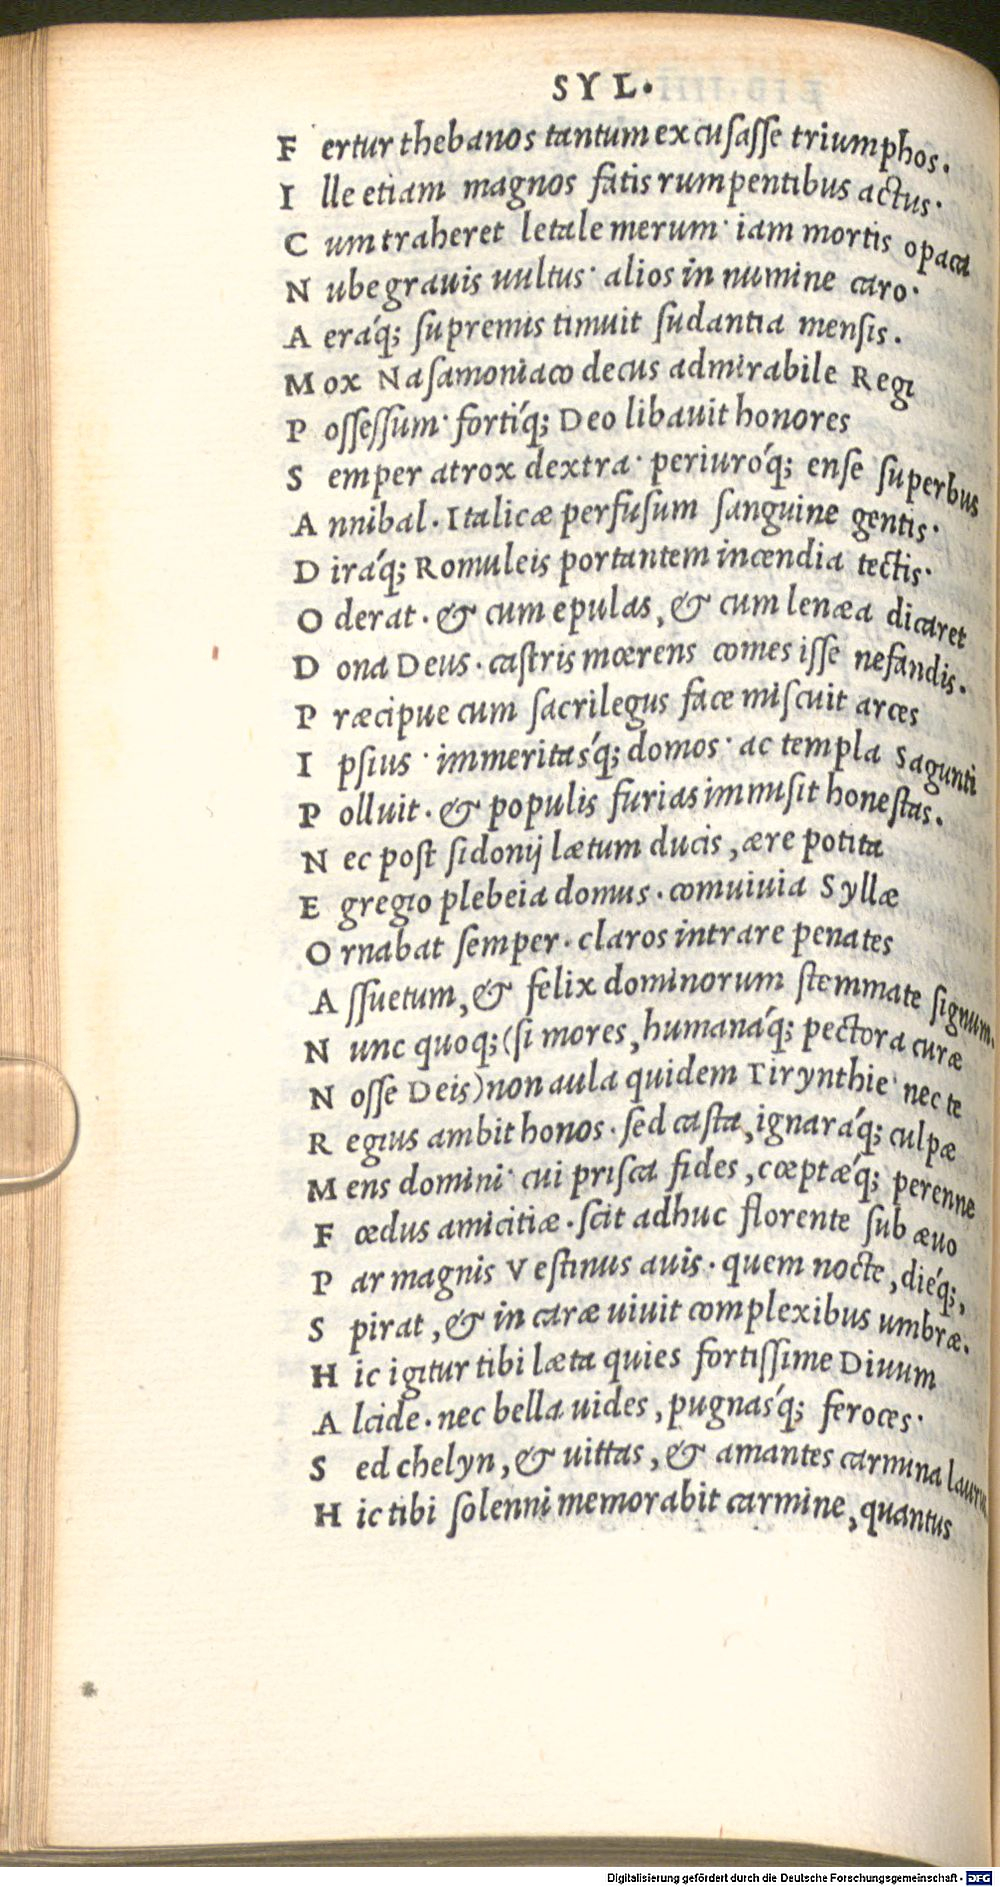 SYL.
F ertur thebanos tantum excusasse triumphos.
I lle etiam magnos fatis rumpentibus actus·
C um traheret letale merum· iam mortis opaca
N ube grauis uultus· alios in numine caro·
A eráq; supremis timuit sudantia mensis.
M ox Nasamoniaco decus admirabile Regi
P ossessum· fortíq; Deo libauit honores
S emper atrox dextra· periuróq; ense superbus
A nnibal. Italicæ perfusum sanguine gentis·
D iráq; Romuleis portantem incendia tectis·
O derat. & cum epulas, & cum lenæa dicaret
D ona Deus. castris mœrens comes isse nefandis.
P ræcipue cum sacrilegus face miscuit arces
I psius· immeritasq́; domos· ac templa Sagunti
P olluit. & populis furias immisit honestas.
N ec post sidonij lætum ducis, ære potita
E gregio plebeia domus. comuiuia Syllæ
O rnabat semper. claros intrare penates
A ssuetum, & felix dominorum stemmate signum.
N unc quoq; (si mores, humanáq; pectora curæ
N osse Deis) non aula quidem Tirynthie· nec te
R egius ambit honos. sed casta, ignaráq; culpæ
M ens domini· cui prisca fides, cœptǽq; perenne
F œdus amicitiæ. scit adhuc florente sub æuo
P ar magnis Vestinus auis. quem nocte, diéq;,
S pirat, & in caræ uiuit complexibus umbræ.
H ic igitur tibi læta quies fortissime Diuum
A lcide. nec bella uides, pugnasq́; feroces·
S ed chelyn, & uittas, & amantes carmina
H ic tibi solenni memorabit carmine, quantus
Digitalisierung gefördert durch die Deutsche Forschungsgemeinschaft - DFG